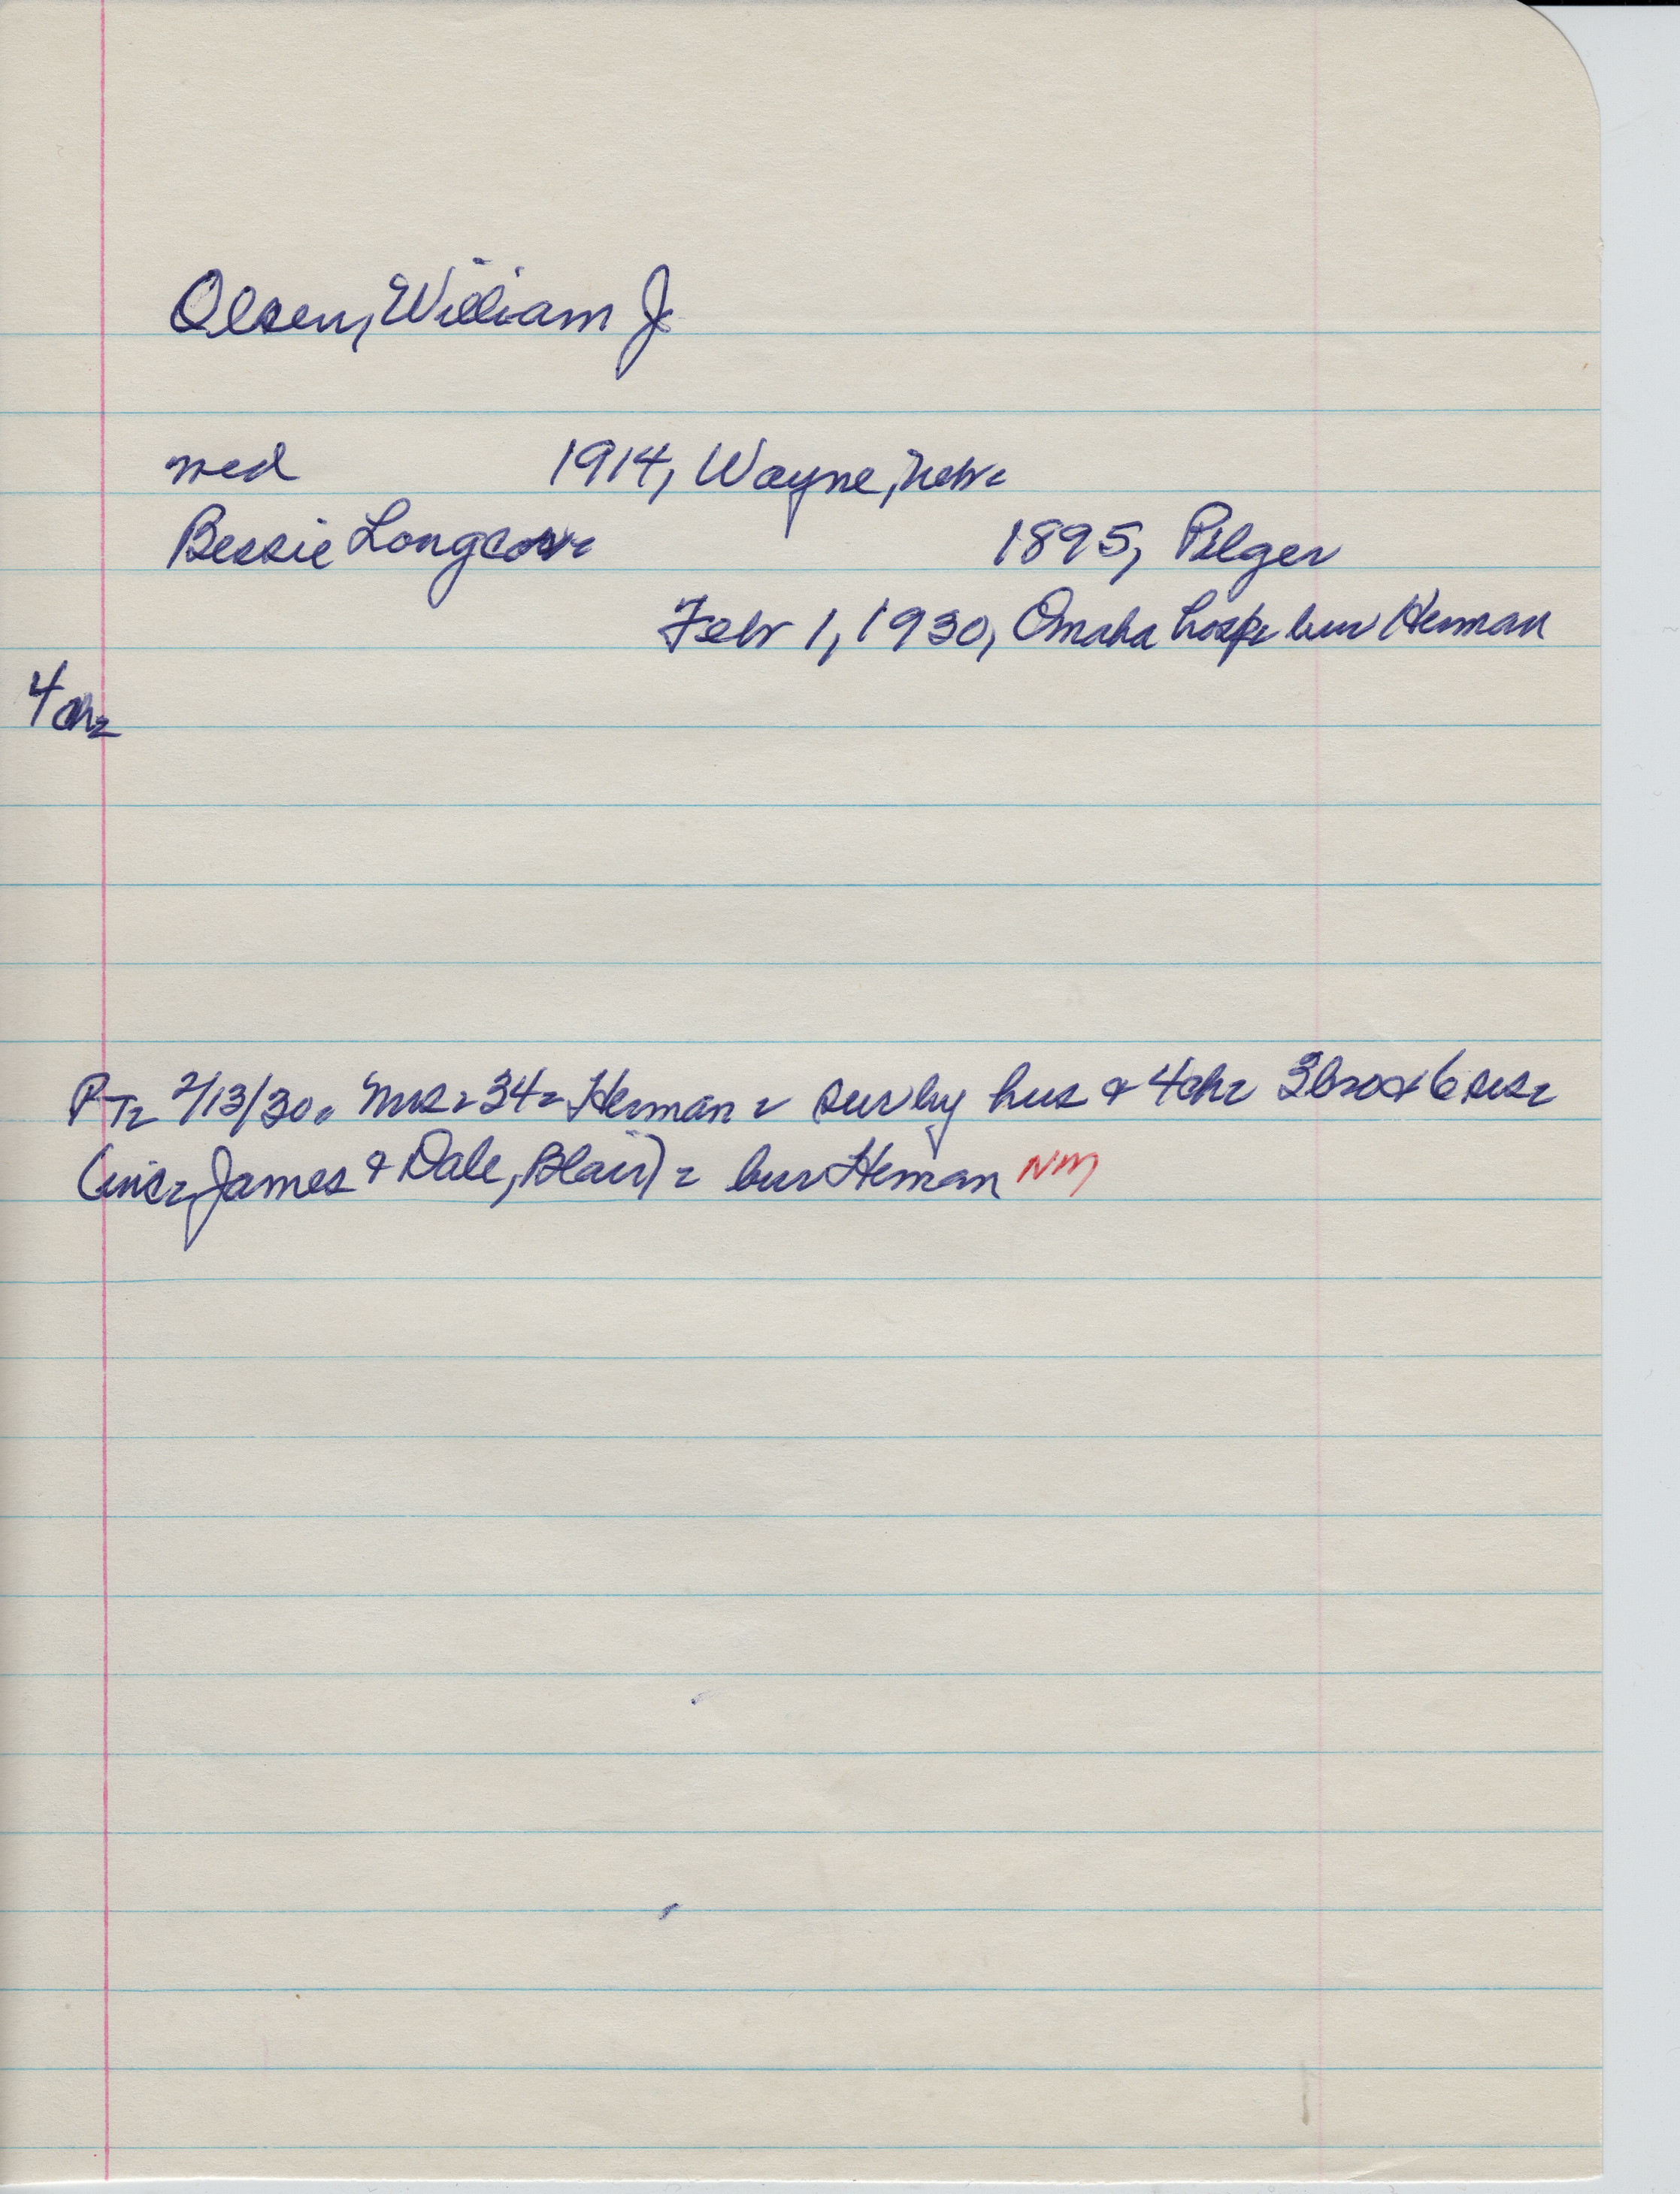 Olsen, William J.
med 1914, Wayne, Nebr.
Bessie Longcor. 1895, Pilger
Febr 1, 1930, Omaha hosp. bur Herman
4 ch.
PT. 2/13/30. Mrs. 34. Herman. sur by hus & 4 ch. 3 bro & 6 sis.
(inc. James & Dale, Blair). bur Herman NM